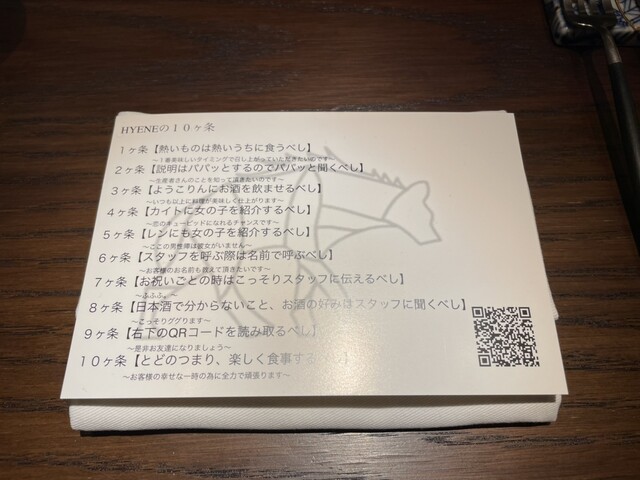 HYENEの10ヶ条
1ヶ条【熱いものは熱いうちに食うべし】
〜1番美味しいタイミングで召し上がっていただきたいのです〜
2ヶ条【説明はパパッとするのでパパッと聞くべし】
〜生産者さんのことを知って頂きたいのです〜
3ヶ条【ようこりんにお酒を飲ませるべし】
〜いつも以上に料理が美味しく仕上がります〜
4ヶ条【カイトに女の子を紹介するべし】
〜恋のキューピッドになれるチャンスです〜
5ヶ条【レンにも女の子を紹介するべし】
〜ここの男性陣は彼女がいません〜
6ヶ条【スタッフを呼ぶ際は名前で呼ぶべし】
〜お客様のお名前も教えて頂きたいです〜
7ヶ条【お祝いごとの時はこっそりスタッフに伝えるべし】
〜ふふふ。〜
8ヶ条【日本酒で分からないこと、お酒の好みはスタッフに聞くべし】
〜こっそりググります〜
9ヶ条【右下のQRコードを読み取るべし】
〜是非お友達になりましょう〜
10ヶ条【とどのつまり、楽しく食事する】
〜お客様の幸せな一時の為に全力で頑張ります〜